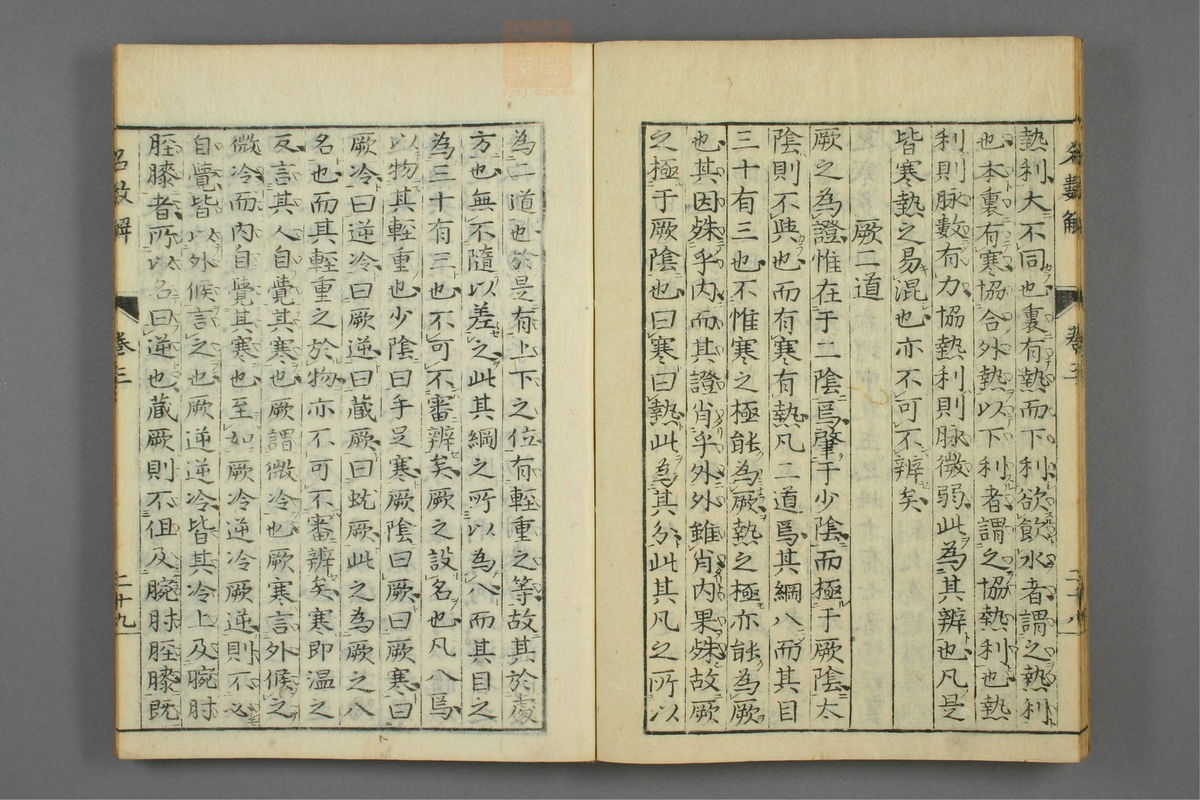 熱利大不同也裏有熱而下利欲飲水者謂之熱利
也本裏有寒協合外熱以下利者謂之協熱利也熱
利則脉數有力協熱利則脉微弱此為其辨也凡是
皆寒熱之易混也亦不可不辨矣
厥二道
厥之為證惟在于二陰焉肇于少陰而極于厥陰太
陰則不與也而有寒有熱凡二道焉其綱八而其目
三十有三也不惟寒之極能為厥熱之極亦能為厥
也其因殊乎内而其證肖乎外外雖肖内果殊故厥
之極于厥陰也曰寒曰熱此為其分此其凡之所以
為二道也於是有上下之位有輕重之等故其於處
方也無不隨以差之此其綱之所以為八而其目之
為三十有三也不可不審辨矣厥之設名也凡八焉
以物其輕重也少陰曰手足寒厥陰曰厥曰厥寒曰
厥冷曰逆冷曰厥逆曰蔵厥曰蚘厥此之為厥之八
名也而其輕重之於物亦不可不審辨矣寒即温之
反言其人自覺其寒也厥謂微冷也厥寒言外候之
微冷而内自覺其寒也至如厥冷逆冷厥逆則不必
自覺皆以外候言之也厥逆逆冷皆其冷上及腕肘
脛膝者所以名曰逆也蔵厥則不但及腕肘脛膝既
名數解
卷三
二十九